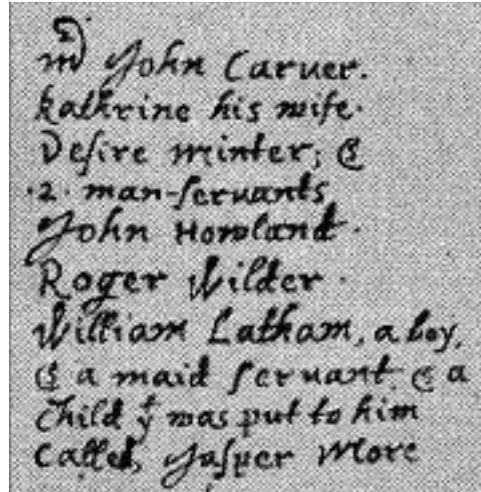 mʳ John Caruer.
kathrine his wife.
Desire minter; &
·2· man-seruants
John Howland.
Roger Wilder.
William Latham, a boy,
& a maid seruant. & a
child yᵗ was put to him
called, Jasper More